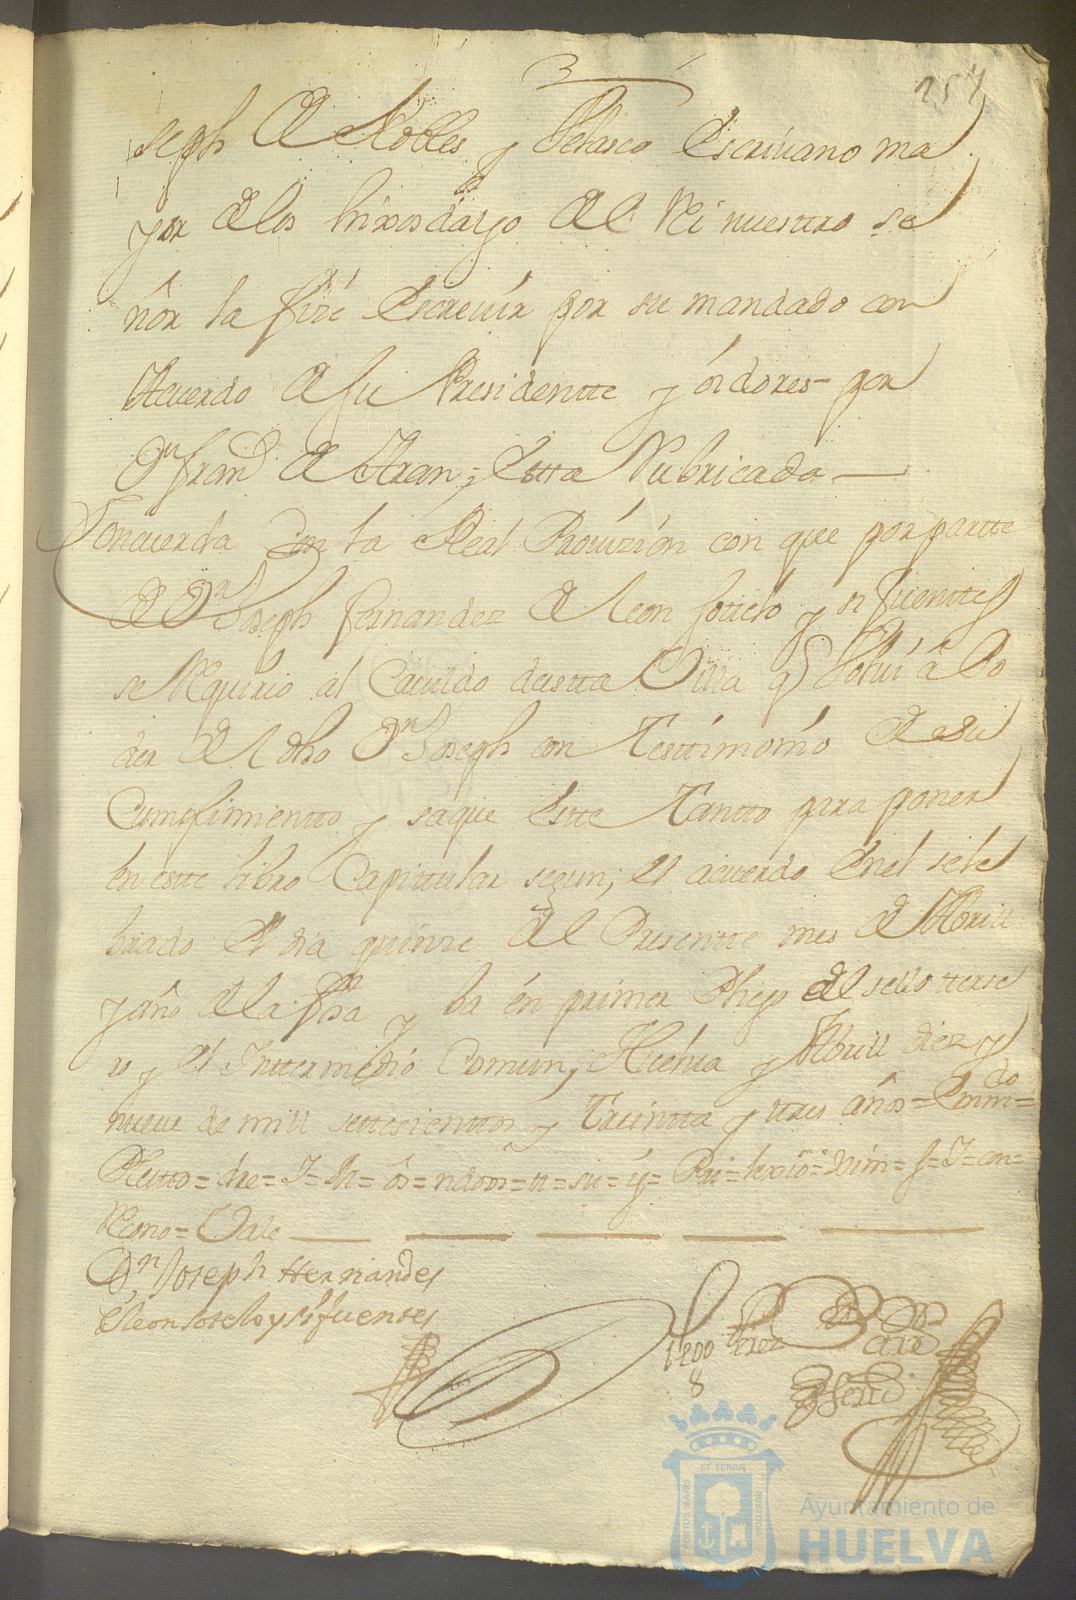 257
seph de Robles y Velasco Escriuano ma
yor de los hixosdalgo del Rei nuestro se
ñor la fize Escreuir por su mandado con
Acuerdo de su Presidentte y oidores por
Dn franco de Aran; Estta Rubricada
Concuerda con la Real Prouizion con que por partte
de Dn Joseph fernandez de leon sotelo y sifuenttes
se Requirio al Cauildo desta Villa q Volui â Po
der del dho Dn Joseph con Testtimonio de su
Cumplimientto y saque Estte Tantto para poner
en estte libro Capittular segun, el acuerdo Enel sele
brado El dia quinze del Presentte mes de Abrill
y año de la fha y ba en primer Pliego del sello terse
ro y el Inttermedio Comun, Huelua y Abrill diez y
nueue de mill settesienttos y Treintta y tres años = Enmdo =
Vale
Dn Joseph Hernandes
de leon sotelo y sifuentes
Perez
Ayuntamiento de
HUELVA